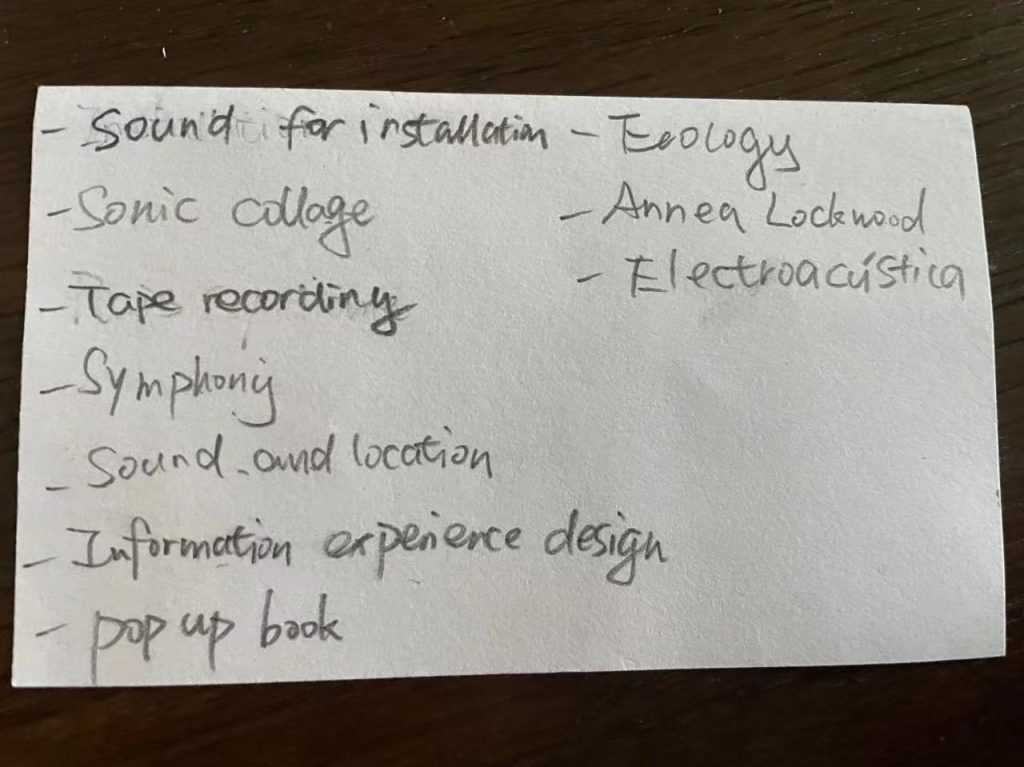 - Sound for installation
- Sonic collage
- Tape recording
- Symphony
- Sound and location
- Information experience design
- pop up book
- Ecology
- Annea Lockwood
- Electroacústica